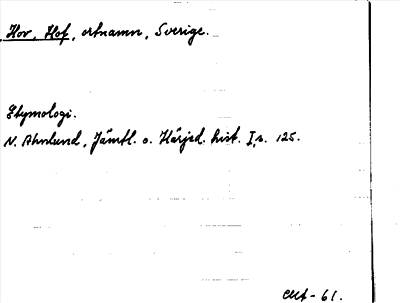 Hov, Hof, ortnamn, Sverige.
Etymologi.
N. Ahnlund, Jämtl. o. Härjed. hist. I, s. 125.
-61.